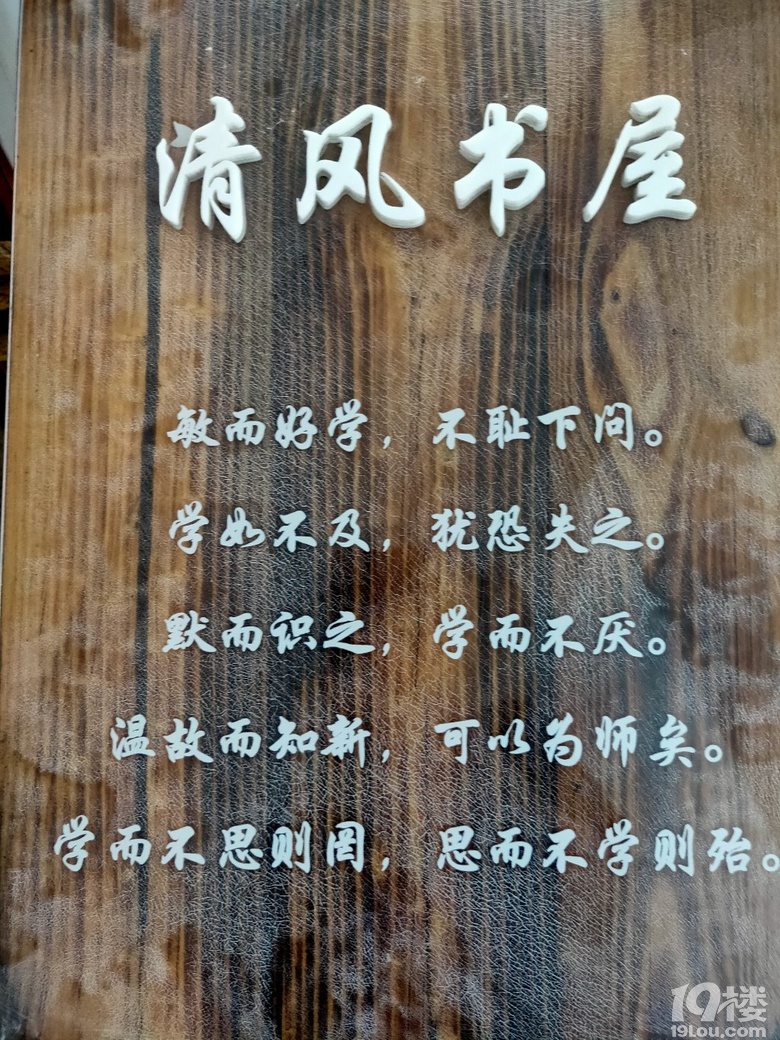 清风书屋
敏而好学，不耻下问。
学如不及，犹恐失之。
默而识之，学而不厌。
温故而知新，可以为师矣。
学而不思则罔，思而不学则殆。
19楼
19lou.com